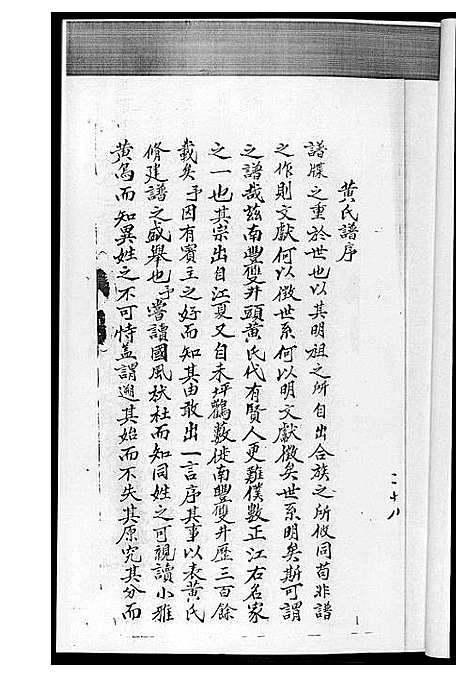 黃氏譜序
譜牒之重於世也以其明祖之所自出合族之所攸同苟非譜
之作則文獻何以徵世系何以明文獻徵矣世系明矣斯可謂
之譜哉茲南豐雙井頭黃氏代有賢人更難僕數正江右名家
之一也其宗出自江夏又自禾坪鸛數徙南豐雙井歷三百餘
載矣予因有賓主之好而知其由敢出一言序其事以表黃氏
脩建譜之盛舉也予嘗讀國風杕杜而知同姓之可親讀小雅
黃鳥而知異姓之不可恃蓋謂遡其始而不失其原究其分而
二十八